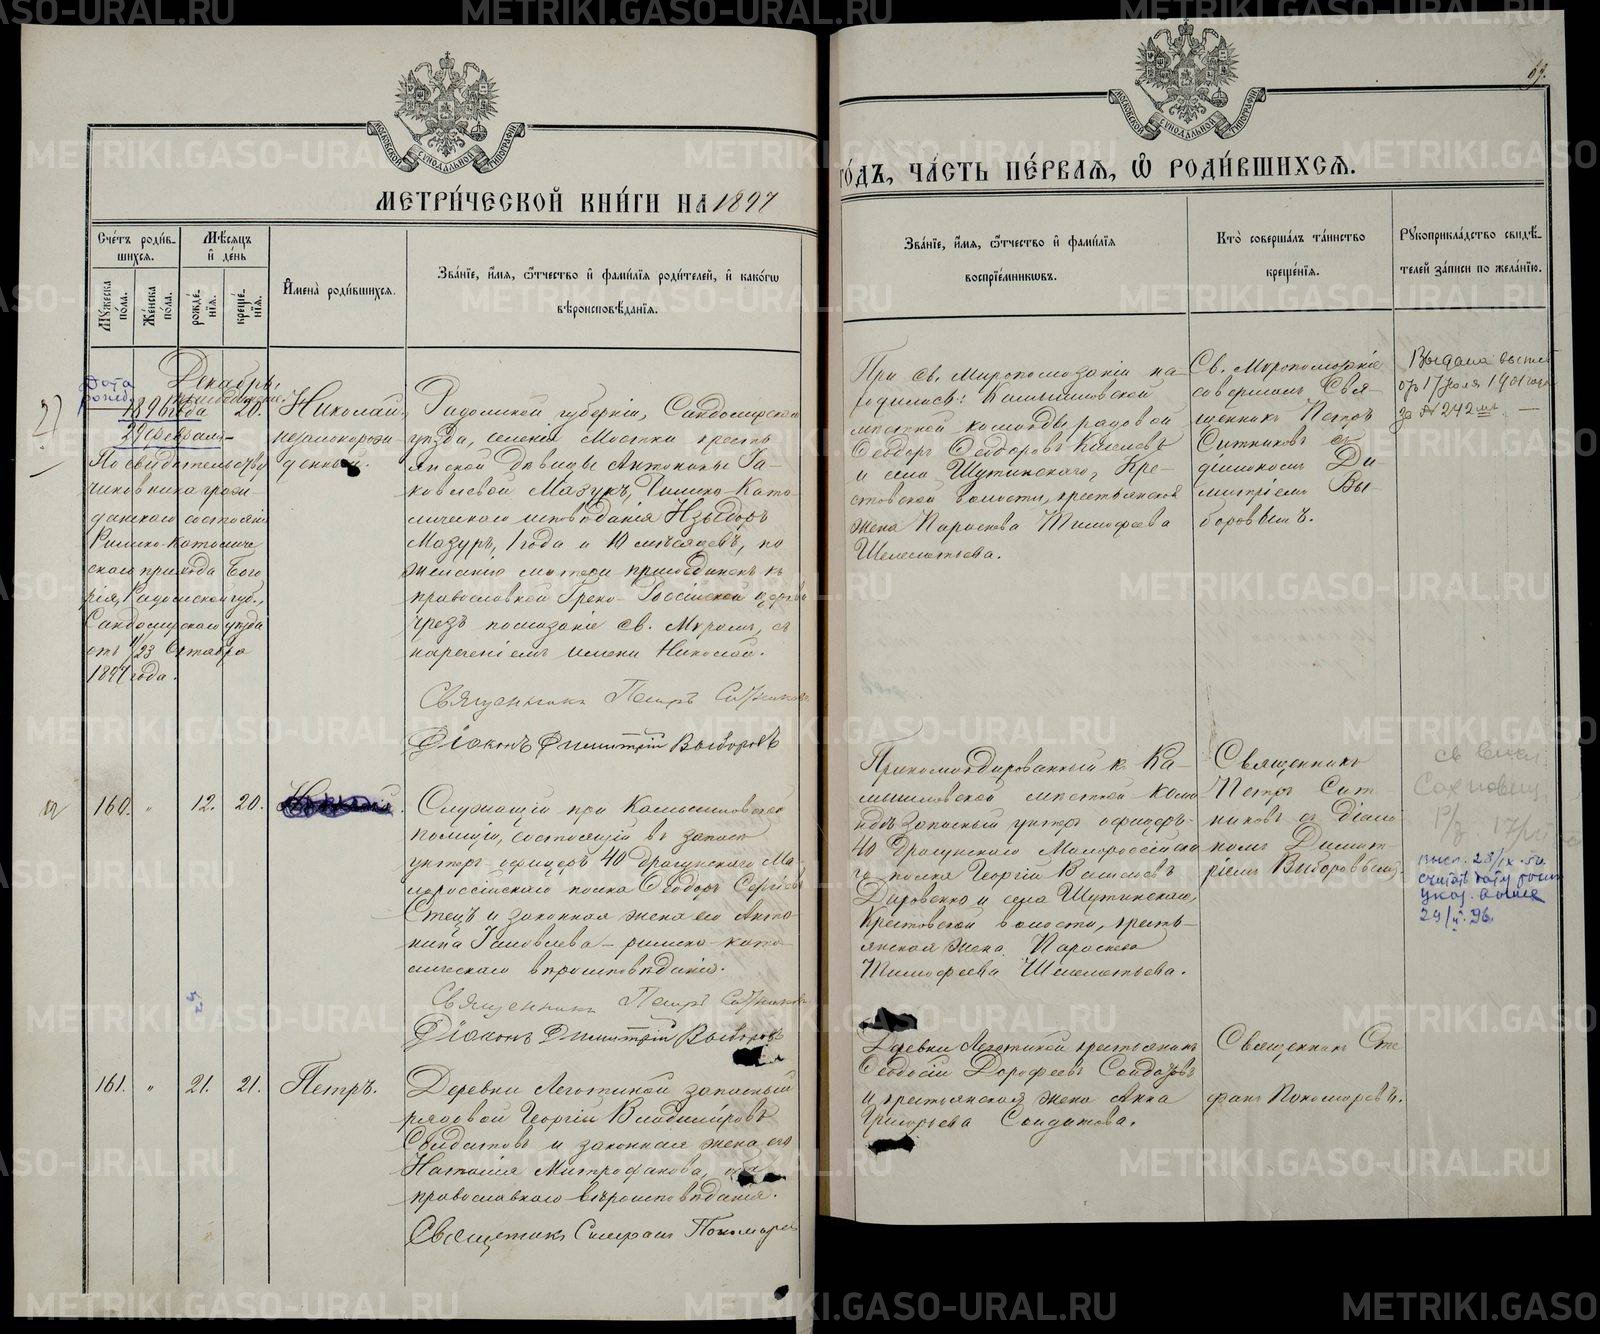 МЕТРИ́ЧЕСКОЙ КНИ́ГИ НА 1897
ГО́ДЪ, ЧА́СТЬ ПЕ́РВАЯ, Ѡ РОДИ́ВШИХСЯ.
69.
МОСКОВСКОЙ СѴНОДАЛЬНОЙ ТИПОГРАФІИ
МОСКОВСКОЙ СѴНОДАЛЬНОЙ ТИПОГРАФІИ
Сче́тъ роди́в-
шихся.
Мѣ́сяцъ
и҆ де́нь
Мꙋ́жеска
по́ла.
Же́нска
по́ла.
рожде́-
нія.
креще́-
нія.
И҆мена̀ роди́вшихся.
Зва́нїе, и҆́мя, ѻ҆́тчество и҆ фами́лїя роди́телей, и҆ како́гѡ
вѣроисповѣ́данїя.
Зва́нїе, и҆́мя, ѻ҆́тчество и҆ фами́лїя
воспрїе́мниковъ.
Кто̀ соверша́лъ та́инство
креще́нїя.
Рꙋкоприкла́дство свидѣ́-
телей за́писи по жела́нїю.
Дата
рожд.
Декабрь.
1896 года 20.
29 февраля
По свидетельству
чиновника граж-
данскаго состоянія
Римско-Католиче
скаго прихода Бого
рія, Радомской губ.,
Сандомирскаго уѣзда
отъ 11/23 Октября
1897 года.
Николай,
незаконорож-
денный.
Радомской губерніи, Сандомирскаго
уѣзда, селенія Мостки кресть
янской дѣвицы Антонины Га-
ковлевой Мазуръ, Римско-Като-
лическаго исповѣданія Изыдоръ
Мазуръ, 1 года и 10 мѣсяцевъ, по
желанію матери присоединенъ къ
православной Греко-Россійской церкви
чрезъ помазаніе св. Мѵромъ, съ
нареченіемъ имени Николай.
Священникъ Петръ Ситниковъ
Діаконъ Димитрій Выборовъ
При св. Миропомазаніи на-
ходились: Камышловской
мѣстной команды рядовой
Ѳеодоръ Ѳеодоровъ Киселевъ
и села Шутинскаго, Кре-
стовской волости, крестьянская
жена Параскева Тимофеева
Шелементьева.
Св. Миропомазаніе
совершалъ Свя-
щенникъ Петръ
Ситниковъ съ
діакономъ Ди-
митріемъ Вы-
боровымъ.
Выдана выпись
отъ 17 Іюля 1901 года
за № 242мъ. —
160. " 12. 20.
Служащій при Камышловской
полиціи, состоящій въ запасѣ
унтеръ-офицеръ 40 драгунскаго Ма-
лороссійскаго полка Ѳеодоръ Сергѣевъ
Стецъ и законная жена его Анто-
нина Гаковлева – римско-като-
лическаго вѣроисповѣданія.
Священникъ Петръ Ситниковъ
Діаконъ Димитрій Выборовъ
Прикомандированный къ Ка-
мышловской мѣстной коман
дѣ запасный унтеръ офицеръ
40 драгунскаго Малороссійска
го полка Георгій Васильевъ
Даровенко и села Шутинскаго,
Крестовской волости, кресть-
янская жена Параскева
Тимофеева Шелементьева.
Священникъ
Петръ Сит-
никовъ съ діако
номъ Димит-
ріемъ Выборовымъ.
высп. 28/IX-50.
считать дату рожд
указ. выше
161. " 21. 21.
Петръ.
Деревни Леготиной запасный
рядовой Георгій Владиміровъ
Солдатовъ и законная жена его
Наталія Митрофанова, оба
православнаго вѣроисповѣданія.
Священникъ Стефанъ Пономаре
Деревни Леготиной крестьянинъ
Ѳеодосій Дорофеевъ Солдатовъ
и крестьянская жена Анна
Григорьева Солдатова.
Священникъ Сте
фанъ Пономаревъ.
METRIKI.GASO-URAL.RU